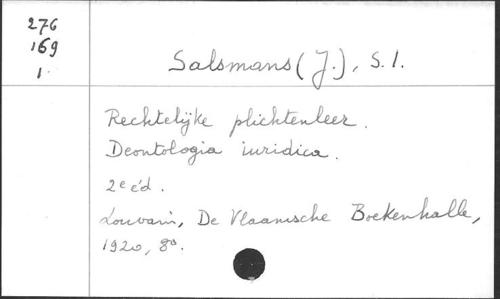 276
169
1
Salsmans (J.), S.I.
Rechtelijke plichtenleer.
Deontologia iuridica.
2e éd.
Louvain, De Vlaamsche Boekenhalle,
1920, 8°.